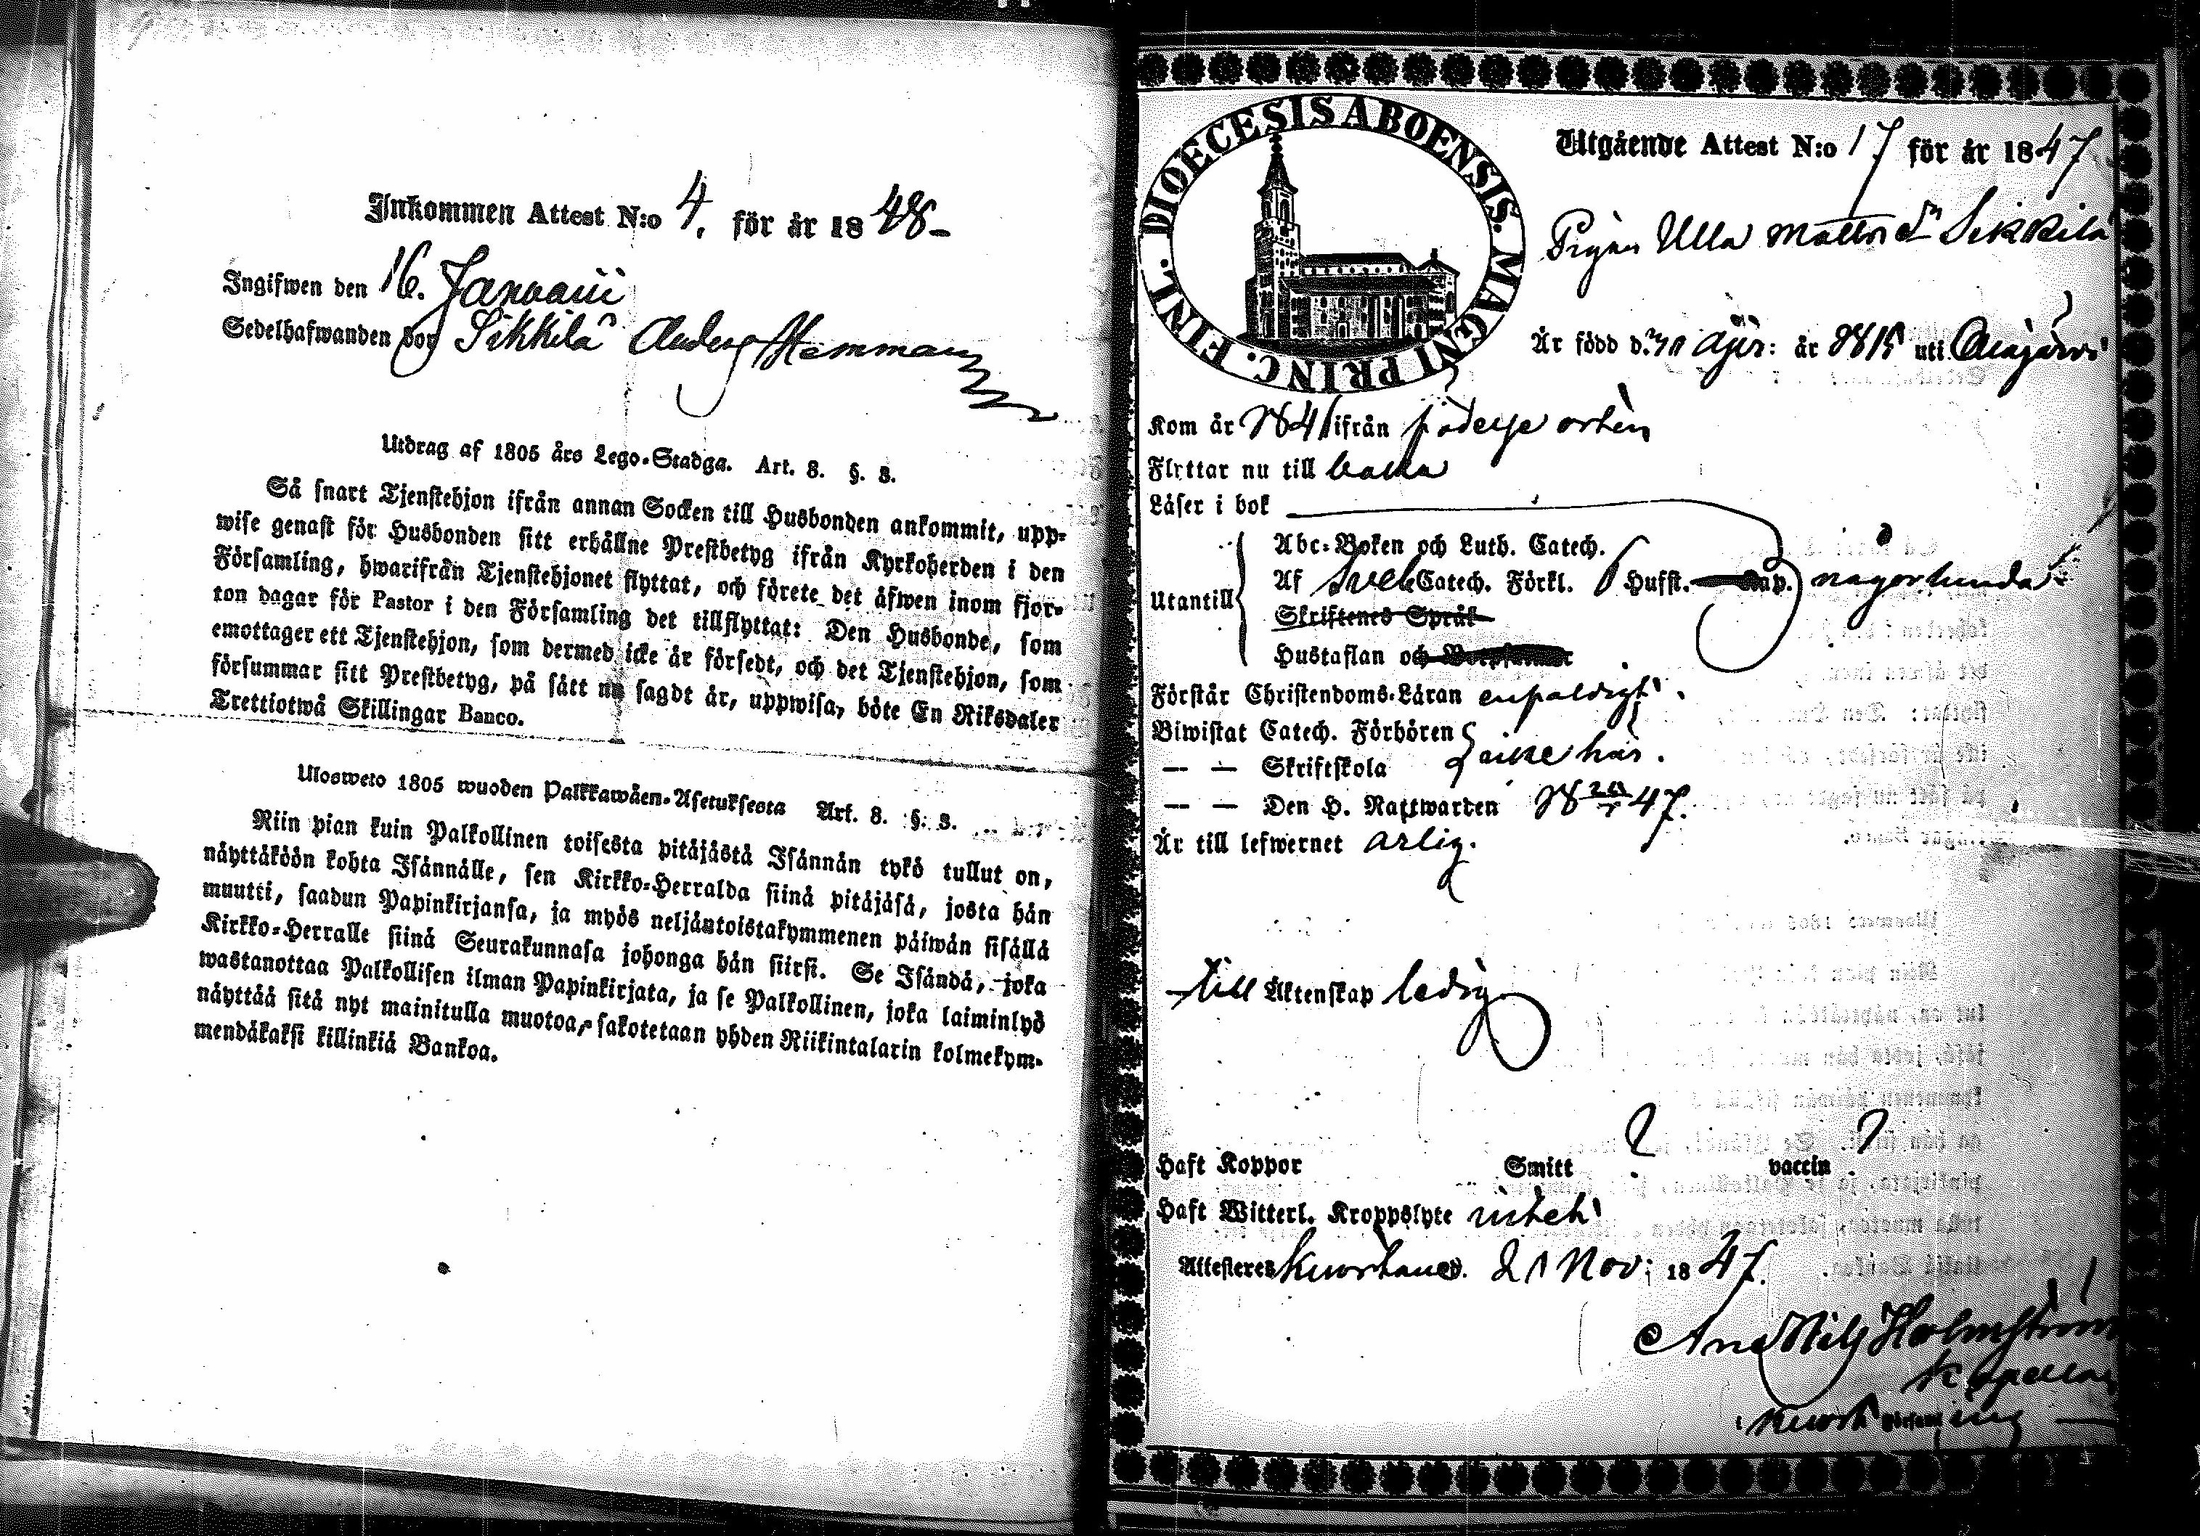 Inkommen Attest N:o 4. för år 1848-
Ingifwen den 16. Januarii
Sedelhafwanden bor Sikkilä Hemman
Utdrag af 1805 års Lego-Stadga. Art. 8. §. 3.
Så snart Tjenstehjon ifrån annan Socken till Husbonden ankommit, upp-
wise genast för Husbonden sitt erhållne Prestbetyg ifrån Kyrkoherden i den
Församling, hwarifrån Tjenstehjonet flyttat, och förete det äfwen inom fjor-
ton dagar för Pastor i den Församling det tillflyttat: Den Husbonde, som
emottager ett Tjenstehjon, som dermed icke är försedt, och det Tjenstehjon, som
försummar sitt Prestbetyg, på sätt nu sagdt är, uppwisa, böte En Riksdaler
Trettiotwå Skillingar Banco.
Ulosweto 1805 wuoden Palkkawäen-Asetuksesta Art. 8. §. 3.
Niin pian kuin Palkollinen toisesta pitäjästä Isännän tykö tullut on,
näyttäköön kohta Isännälle, sen Kirkko-Herralda siinä pitäjäsä, josta hän
muutti, saadun Papinkirjansa, ja myös neljäntoistakymmenen päiwän sisällä
Kirkko-Herralle siinä Seurakunnasa johonga hän siirsi. Se Isändä, joka
wastanottaa Palkollisen ilman Papinkirjata, ja se Palkollinen, joka laiminlyö
näyttää sitä nyt mainitulla muotoa, sakotetaan yhden Riikintalarin kolmekym-
mendäkaksi killinkiä Bankoa.
DIOECESIS ABOENSIS. MAGNI PRINC. FINL.
Utgående Attest N:o 17 för år 1847
Pigan Ulla Mattsdr Sikkilä
Är född d. år 1815 uti Alajärvi
Kom år 1841 ifrån födelse orten
Flyttar nu till baka
Läser i bok
Abc-Boken och Luth. Catech.
Utantill Af Sveb Catech. Förkl. 6 Hufst. Cap. någorlunda
Skriftenes Språk
Hustaflan och
Förstår Christendoms-Läran enfaldigt.
Biwistat Catech. Förhören
— — Skriftskola icke här.
— — Den H. Nattwarden 18 47.
Är till lefwernet ärlig.
Till Äktenskap ledig
Haft Koppor Smitt ? vaccin ?
Haft Witterl. Kroppslyte intet
Attesteres Kuortane d. 21 Nov: 1847.
And Nils Holmström
Kapellan
i Kuort församling